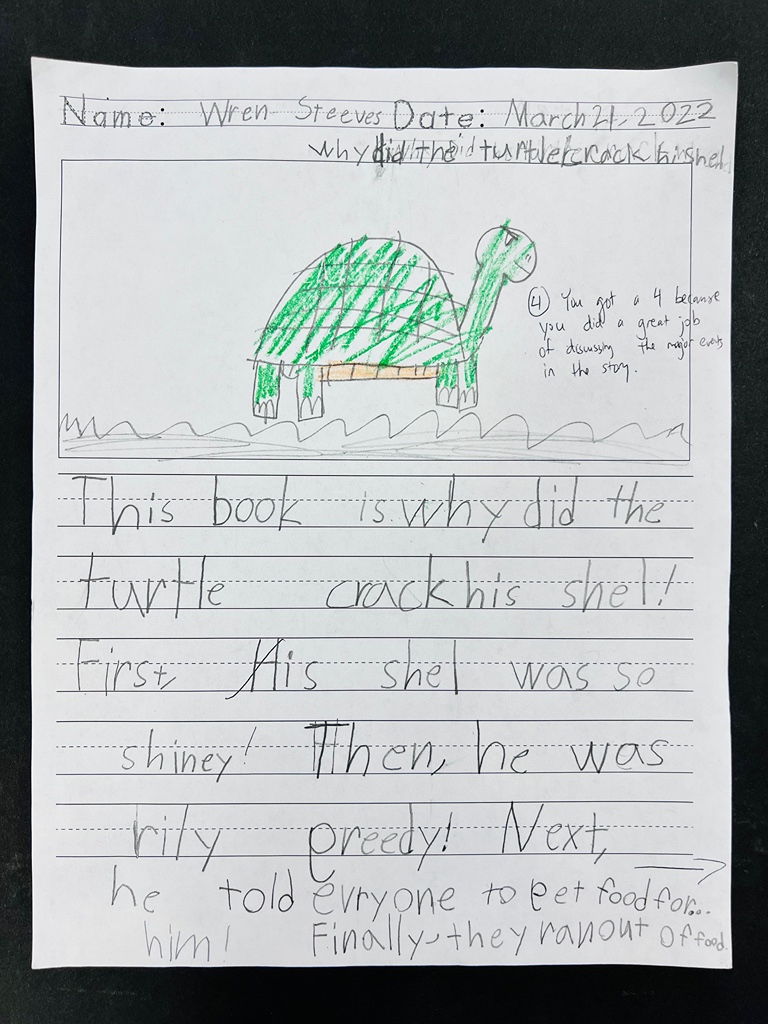 Name: Wren Steeves Date: March 21, 2022
why did the turtle crack his shel
④ You got a 4 because
you did a great job
of discussing the major events
in the story.
This book is why did the
turtle crack his shel!
First, His shel was so
shiney! Then, he was
rily greedy! Next,
he told evryone to get food for...
him! Finally, they ran out of food